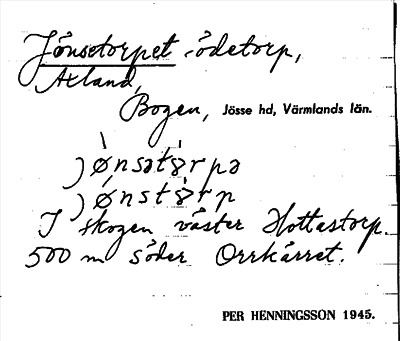 Jönsetorpet ödetorp,
Axland,
Bogen, Jösse hd, Värmlands län.
jønsətørpə
jønstørp
I skogen väster Hottastorp.
500 m söder Orrkärret.
PER HENNINGSSON 1945.